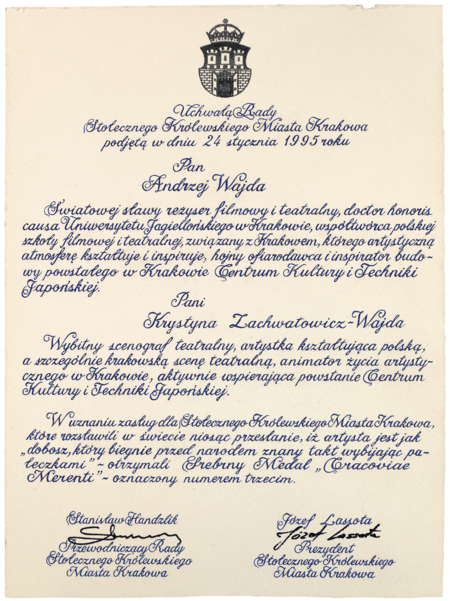 Uchwałą Rady
Stołecznego Królewskiego Miasta Krakowa
podjętą w dniu 24 stycznia 1995 roku
Pan
Andrzej Wajda
Światowej sławy reżyser filmowy i teatralny, doctor honoris
causa Uniwersytetu Jagiellońskiego w Krakowie, współtwórca polskiej
szkoły filmowej i teatralnej, związany z Krakowem, którego artystyczną
atmosferę kształtuje i inspiruje, hojny ofiarodawca i inspirator budo-
wy powstałego w Krakowie Centrum Kultury i Techniki
Japońskiej.
Pani
Krystyna Zachwatowicz-Wajda
Wybitny scenograf teatralny, artystka kształtująca polską,
a szczególnie krakowską scenę teatralną, animator życia artysty-
cznego w Krakowie, aktywnie wspierająca powstanie Centrum
Kultury i Techniki Japońskiej.
W uznaniu zasług dla Stołecznego Królewskiego Miasta Krakowa,
które rozsławili w świecie niosąc przesłanie, iż artysta jest jak
„dobosz, który biegnie przed narodem znany takt wybijając pa-
łeczkami" ~ otrzymali Srebrny Medal „Cracoviae
Merenti" ~ oznaczony numerem trzecim.
Stanisław Handzlik
Przewodniczący Rady
Stołecznego Królewskiego
Miasta Krakowa
Józef Lassota
Józef Lassota
Prezydent
Stołecznego Królewskiego
Miasta Krakowa